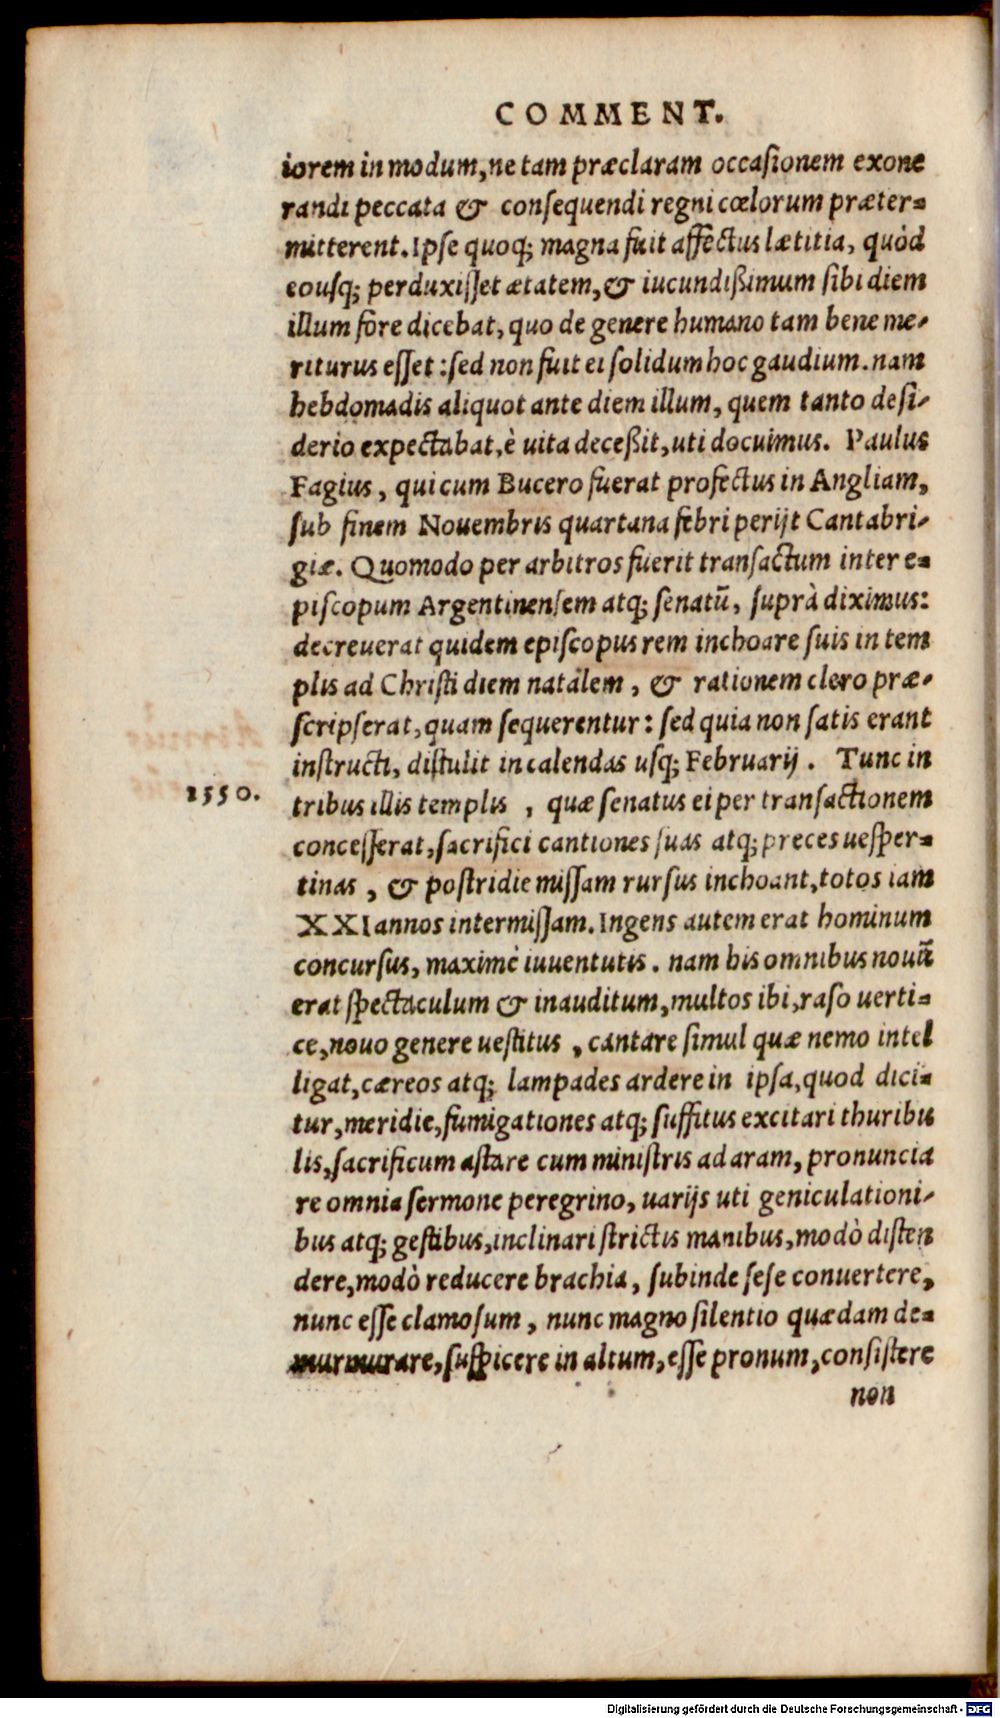 COMMENT.
iorem in modum, ne tam præclaram occasionem exone
randi peccata & consequendi regni cœlorum præter-
mitterent. Ipse quoq; magna fuit affectus lætitia, quòd
eousq; perduxisset ætatem, & iucundißimum sibi diem
illum fore dicebat, quo de genere humano tam bene me-
riturus esset: sed non fuit ei solidum hoc gaudium. nam
hebdomadis aliquot ante diem illum, quem tanto desi-
derio expectabat, è uita deceßit, uti docuimus. Paulus
Fagius, qui cum Bucero fuerat profectus in Angliam,
sub finem Nouembris quartana febri perijt Cantabri-
giæ. Quomodo per arbitros fuerit transactum inter e-
piscopum Argentinensem atq; senatū, suprà diximus:
decreuerat quidem episcopus rem inchoare suis in tem
plis ad Christi diem natálem, & rationem clero præ-
scripserat, quam sequerentur: sed quia non satis erant
instructi, distulit in calendas usq; Februarij. Tunc in
1550. tribus illis templis, quæ senatus ei per transactionem
concesserat, sacrifici cantiones suas atq; preces uesper-
tinas, & postridie missam rursus inchoant, totos iam
XXI annos intermissam. Ingens autem erat hominum
concursus, maximè iuuentutis. nam his omnibus nouū
erat spectaculum & inauditum, multos ibi, raso uerti-
ce, nouo genere uestitus, cantare simul quæ nemo intel
ligat, cæreos atq; lampades ardere in ipsa, quod dici-
tur, meridie, fumigationes atq; suffitus excitari thuribu
lis, sacrificum astare cum ministris ad aram, pronuncia
re omnia sermone peregrino, uarijs uti geniculationi-
bus atq; gestibus, inclinari strictis manibus, modò disten
dere, modò reducere brachia, subinde sese conuertere,
nunc esse clamosum, nunc magno silentio quædam de-
murmurare, suspicere in altum, esse pronum, consistere
non
Digitalisierung gefördert durch die Deutsche Forschungsgemeinschaft - DFG